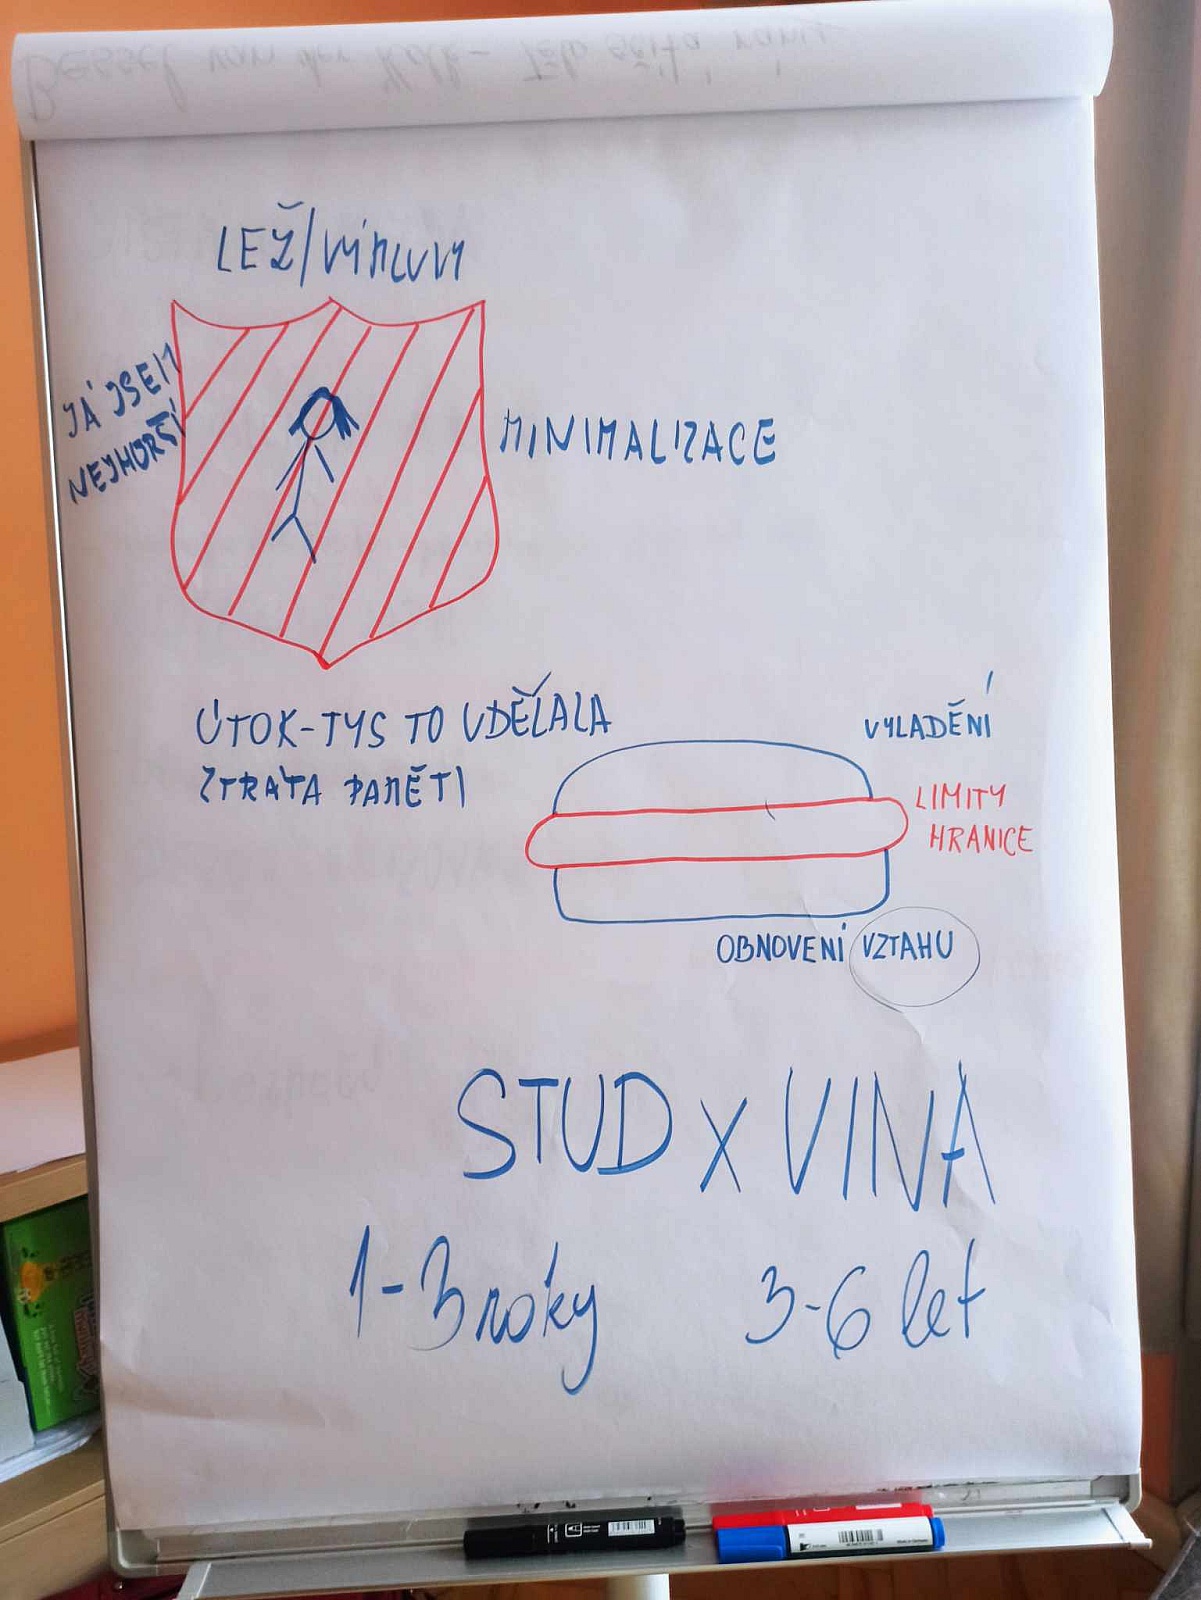 Bessel van der Kolk - Tělo sčítá rány
LEŽ/VÝMLUVY
JÁ JSEM
NEJHORŠÍ
MINIMALIZACE
ÚTOK-TYS TO UDĚLALA
ZTRÁTA PAMĚTI
VYLADĚNÍ
LIMITY
HRANICE
OBNOVENÍ VZTAHU
STUD X VINA
1-3 roky 3-6 let